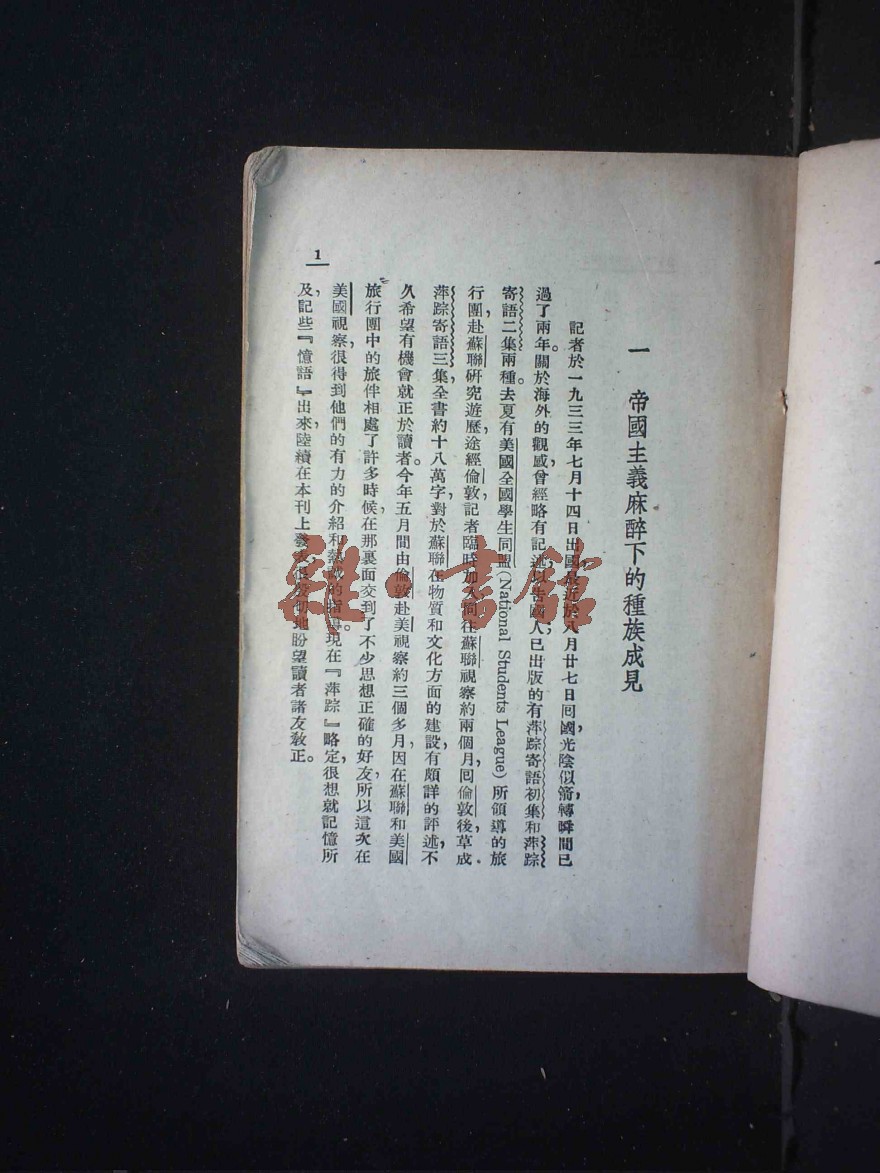 一 帝國主義麻醉下的種族成見
記者於一九三三年七月十四日出國，最近於八月廿七日回國，光陰似箭，轉瞬間已
過了兩年。關於海外的觀感，曾經略有記述，以告國人，已出版的有萍踪寄語初集和萍踪
寄語二集兩種。去夏有美國全國學生同盟(National Students League)所領導的旅
行團，赴蘇聯研究遊歷，途經倫敦，記者臨時加入同往蘇聯視察約兩個月，回倫敦後，草成
萍踪寄語三集，全書約十八萬字，對於蘇聯在物質和文化方面的建設，有頗詳的評述，不
久希望有機會就正於讀者。今年五月間由倫敦赴美視察約三個多月，因在蘇聯和美國
旅行團中的旅伴相處了許多時候，在那裏面交到了不少思想正確的好友，所以這次在
美國視察，很得到他們的有力的介紹和熱誠的指導。現在『萍踪』略定，很想就記憶所
及，記些『憶語』出來，陸續在本刊上發表，很殷切地盼望讀者諸友教正。
1
雜·書館